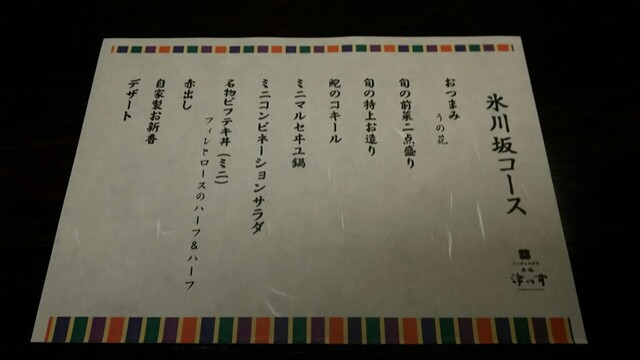 氷川坂コース
おつまみ
うの花
旬の前菜二点盛り
旬の特上お造り
蛇のコキール
ミニマルセヰユ鍋
ミニコンビネーションサラダ
名物ビフテキ丼(ミニ)
フィレとロースのハーフ&ハーフ
赤出し
自家製お新香
デザート
津つ井